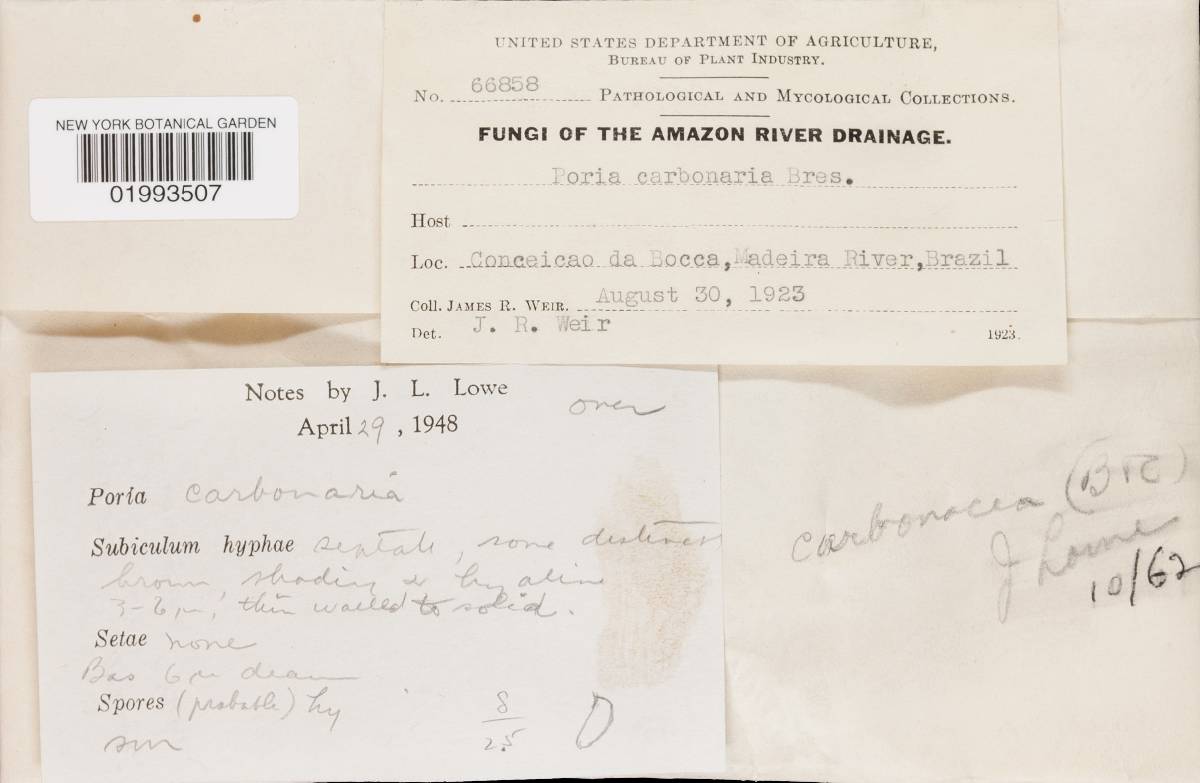 UNITED STATES DEPARTMENT OF AGRICULTURE,
BUREAU OF PLANT INDUSTRY.
No. 66858 PATHOLOGICAL AND MYCOLOGICAL COLLECTIONS.
FUNGI OF THE AMAZON RIVER DRAINAGE.
Poria carbonaria Bres.
Host
Loc. Conceicao da Bocca, Madeira River, Brazil
Coll. JAMES R. WEIR. August 30, 1923
Det. J. R. Weir 1923.
NEW YORK BOTANICAL GARDEN
01993507
Notes by J. L. Lowe
over
April 29, 1948
Poria carbonaria
Subiculum hyphae septate, some distinctly
brown, shading to hyaline
3-6 µ, thin walled to solid.
Setae none
Bas 6 µ diam
Spores (probable) hy
sm
8
25
carbonacea (B&C)
J Lowe
10/62